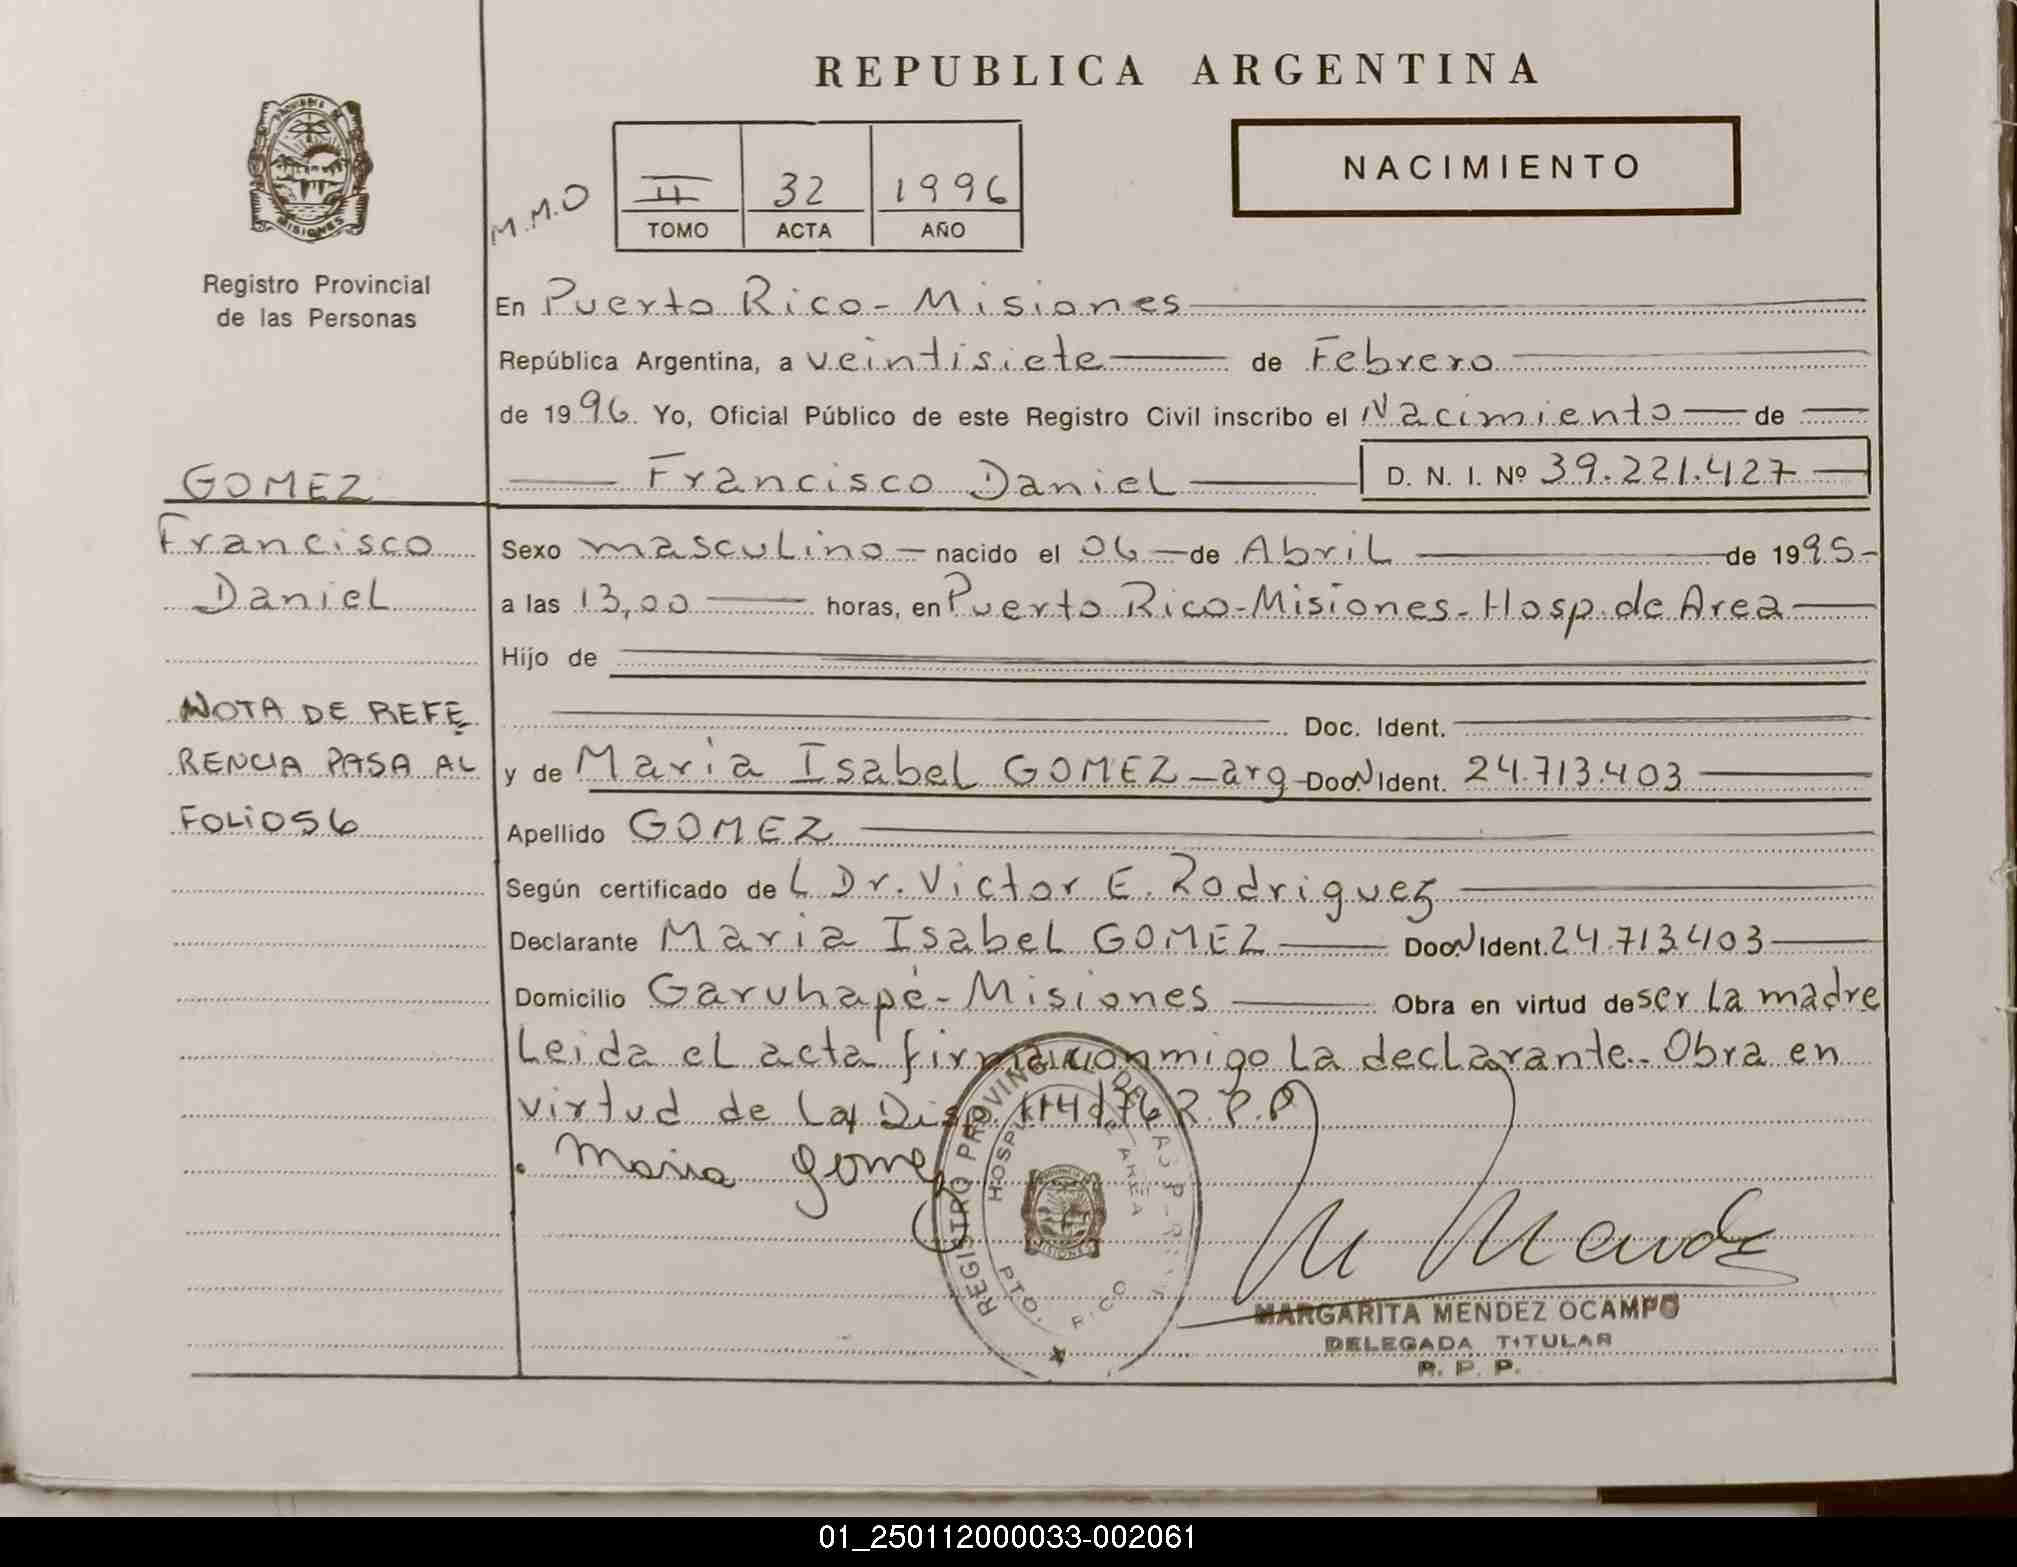 REPUBLICA ARGENTINA
PROVINCIA DE
MISIONES
Registro Provincial
de las Personas
M.M.O
II 32 1996
TOMO ACTA AÑO
NACIMIENTO
En Puerto Rico - Misiones
República Argentina, a veintisiete de Febrero
de 1996. Yo, Oficial Público de este Registro Civil inscribo el Nacimiento de
Francisco Daniel D. N. I. Nº 39.221.427
GOMEZ
Francisco
Daniel
Sexo masculino nacido el 06 de Abril de 1995
a las 13,00 horas, en Puerto Rico-Misiones-Hosp. de Area
Hijo de
Doc. Ident.
y de Maria Isabel GOMEZ - arg - Doc. N Ident. 24.713.403
Apellido GOMEZ
Según certificado de L Dr. Victor E. Rodriguez
Declarante Maria Isabel GOMEZ Doc. N Ident. 24.713.403
Domicilio Garuhapé - Misiones Obra en virtud de ser la madre
Leida el acta firma conmigo la declarante. Obra en
virtud de la Disp. 114/76 R.P.P
NOTA DE REFE
RENCIA PASA AL
FOLIO 56
Maria Gomez
REGISTRO PROVINCIAL DE LAS P.
HOSPITAL DE AREA
MISIONES
PTO. RICO
M Mendez
MARGARITA MENDEZ OCAMPO
DELEGADA TITULAR
R. P. P.
01_250112000033-002061